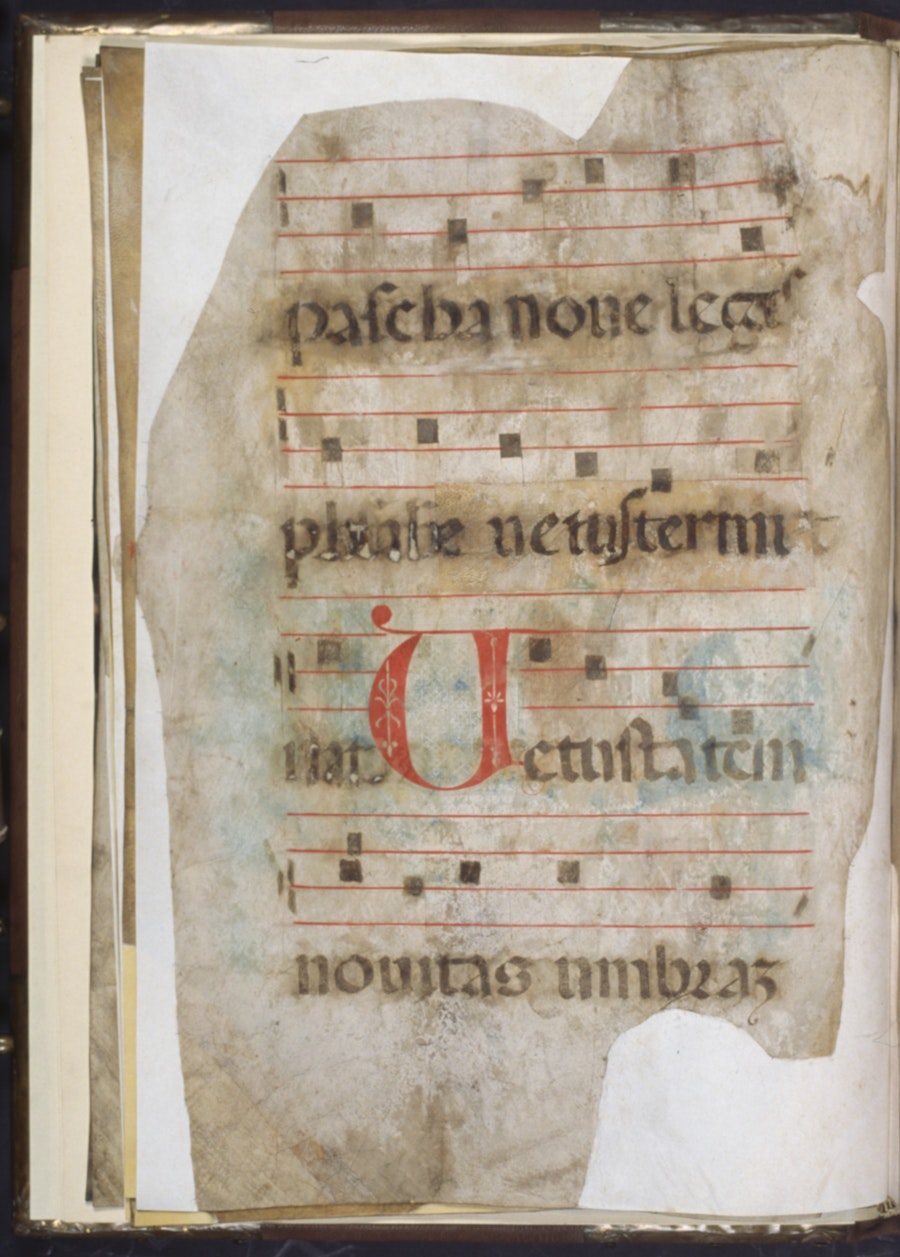 pascha noue legis
phase uetus termi
nat. Uetustatem
nouitas umbraʒ